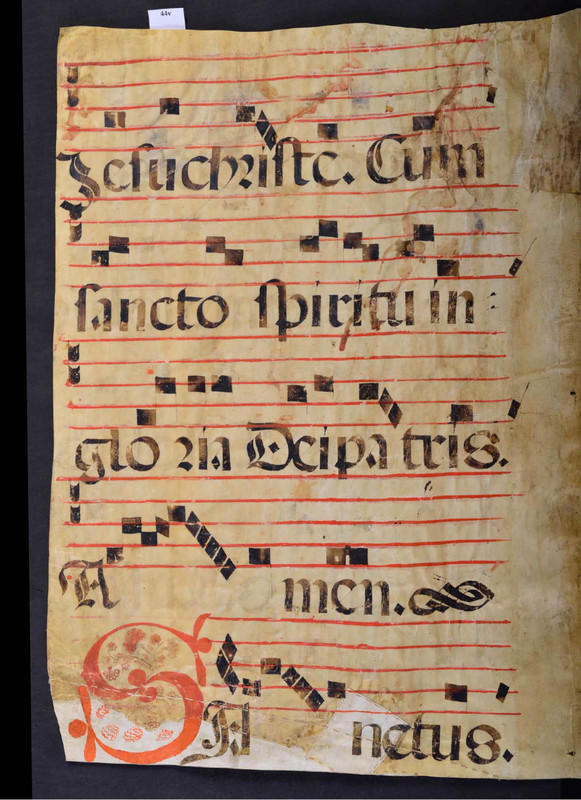 44v
Jesuchriste. Cum
sancto spiritu in :
gloria Dei patris.
Amen.
SAnctus.